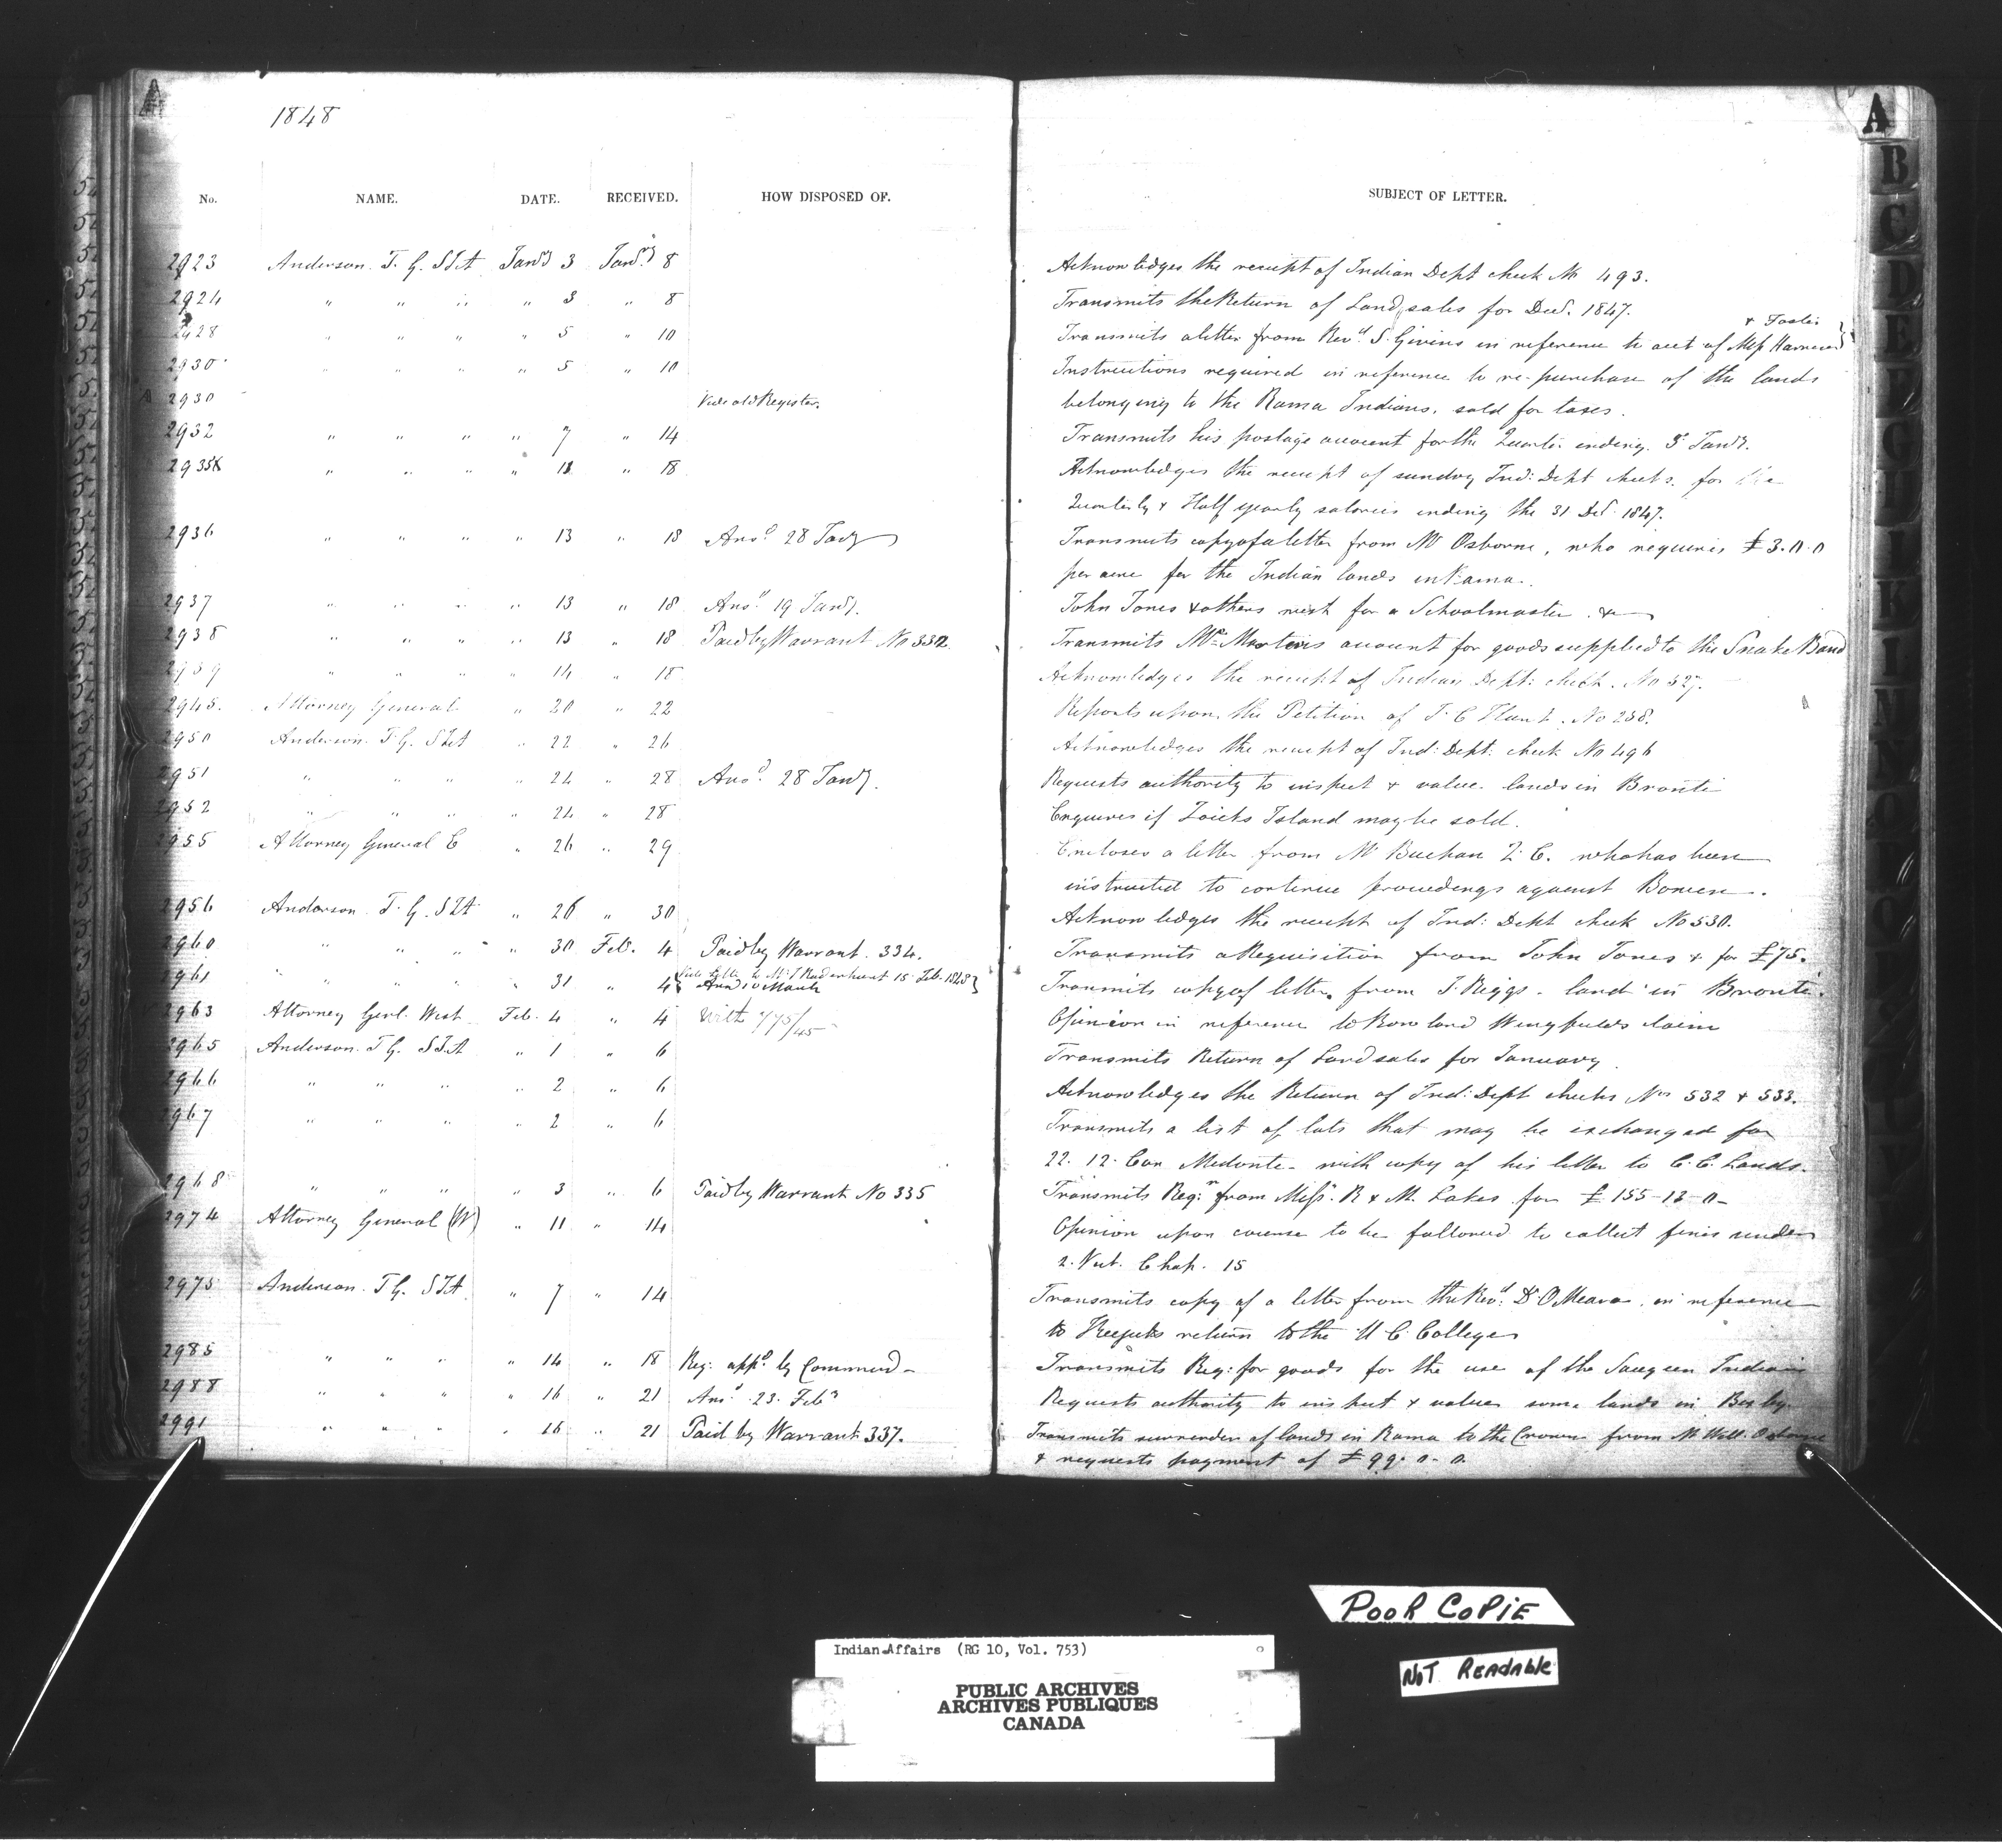 1848
No. NAME. DATE. RECEIVED. HOW DISPOSED OF. SUBJECT OF LETTER.
2923 Anderson T. G. SIA Jany 3 Jany 8 Acknowledges the receipt of Indian Dept check No 493.
2924 " " " " 3 " 8 Transmits the Return of Land sales for Decr. 1847.
2928 " " " " 5 " 10 Transmits a letter from Revd S. Givins in reference to acct of Mess + Foster
2930 " " " " 5 " 10 Instructions required in reference to re-purchase of the lands
A 2930 Vide old Register. belonging to the Rama Indians, sold for taxes.
2932 " " " " 7 " 14 Transmits his postage account for the Quarter ending 5 Jany.
2935 " " " " 13 " 18 Acknowledges the receipt of sundry Ind: Dept checks for the
Quarterly + Half yearly salaries ending the 31 Decr 1847.
2936 " " " " 13 " 18 Ansd 28 Jany Transmits copy of a letter from Mr Osborne, who requires £3.0.0
per acre for the Indian lands in Rama.
2937 " " " " 13 " 18 Ansd 19 Jany. John Jones & others wish for a Schoolmaster. &c
2938 " " " " 13 " 18 Paid by Warrant No 332. Transmits Mr Martins account for goods supplied to the Snake Band
2939 " " " " 14 " 18 Acknowledges the receipt of Indian Dept: check No 527.
2945. Attorney General " 20 " 22 Reports upon the Petition of J. C No 258.
2950 Anderson T G. SIA " 22 " 26 Acknowledges the receipt of Ind: Dept. check No 496
2951 " " " " 24 " 28 Ansd. 28 Jany. Requests authority to inspect + value lands in Bronte
2952 " " " " 24 " 28 Enquires if Island may be sold.
2955 Attorney General " 26 " 29 Encloses a letter from Mr Buchan Q. C. who has been
instructed to continue proceedings against Bowen.
2956 Anderson T. G. SIA " 26 " 30 Acknowledges the receipt of Ind: Dept check No 530.
2960 " " " " 30 Feb. 4 Paid by Warrant. 334. Transmits a Requisition from John Jones + for £75.
2961 " " " " 31 " 4 Vide letter to Mr 15 Feb. 1848 Ansd 10 March Transmits copy of letter from J. Riggs. land in Bronte.
2963 Attorney Genl. West Feb. 4 " 4 With 775/45 Opinion in reference to Rowland Wingfields claim
2965 Anderson T G. SIA " 1 " 6 Transmits Return of Land sales for January.
2966 " " " " 2 " 6 Acknowledges the Return of Ind: Dept checks Nos 532 + 533.
2967 " " " " 2 " 6 Transmits a list of lots that may be exchanged for
22. 12. Con Medonte - with copy of his letter to C. C. Lands.
2968 " " " " 3 " 6 Paid by Warrant No 335 Transmits Reqn from Messrs. R + M. Lakes for £155-12-0-
2974 Attorney General (W) " 11 " 14 Opinion upon course to be followed to collect fines under
2. Vict. Chap. 15
2975 Anderson T G. SIA " 7 " 14 Transmits copy of a letter from the Revd. Dr O'Meara in reference
to return to the U C. College
2985 " " " " 14 " 18 Req: appd by Command - Transmits Req: for goods for the use of the Saugeen Indians
2988 " " " " 16 " 21 Ansd 23. Feby Requests authority to inspect + value some lands in Bexley.
2991 " " " " 16 " 21 Paid by Warrant 337. Transmits surrender of lands in Rama to the Crown from Mr Will. Osborne
+ requests payment of £99. 0 - 0
A
B
C
D
E
F
G
H
I
K
POOR COPIE
NOT READABLE
Indian Affairs (RG 10, Vol. 753)
PUBLIC ARCHIVES
ARCHIVES PUBLIQUES
CANADA